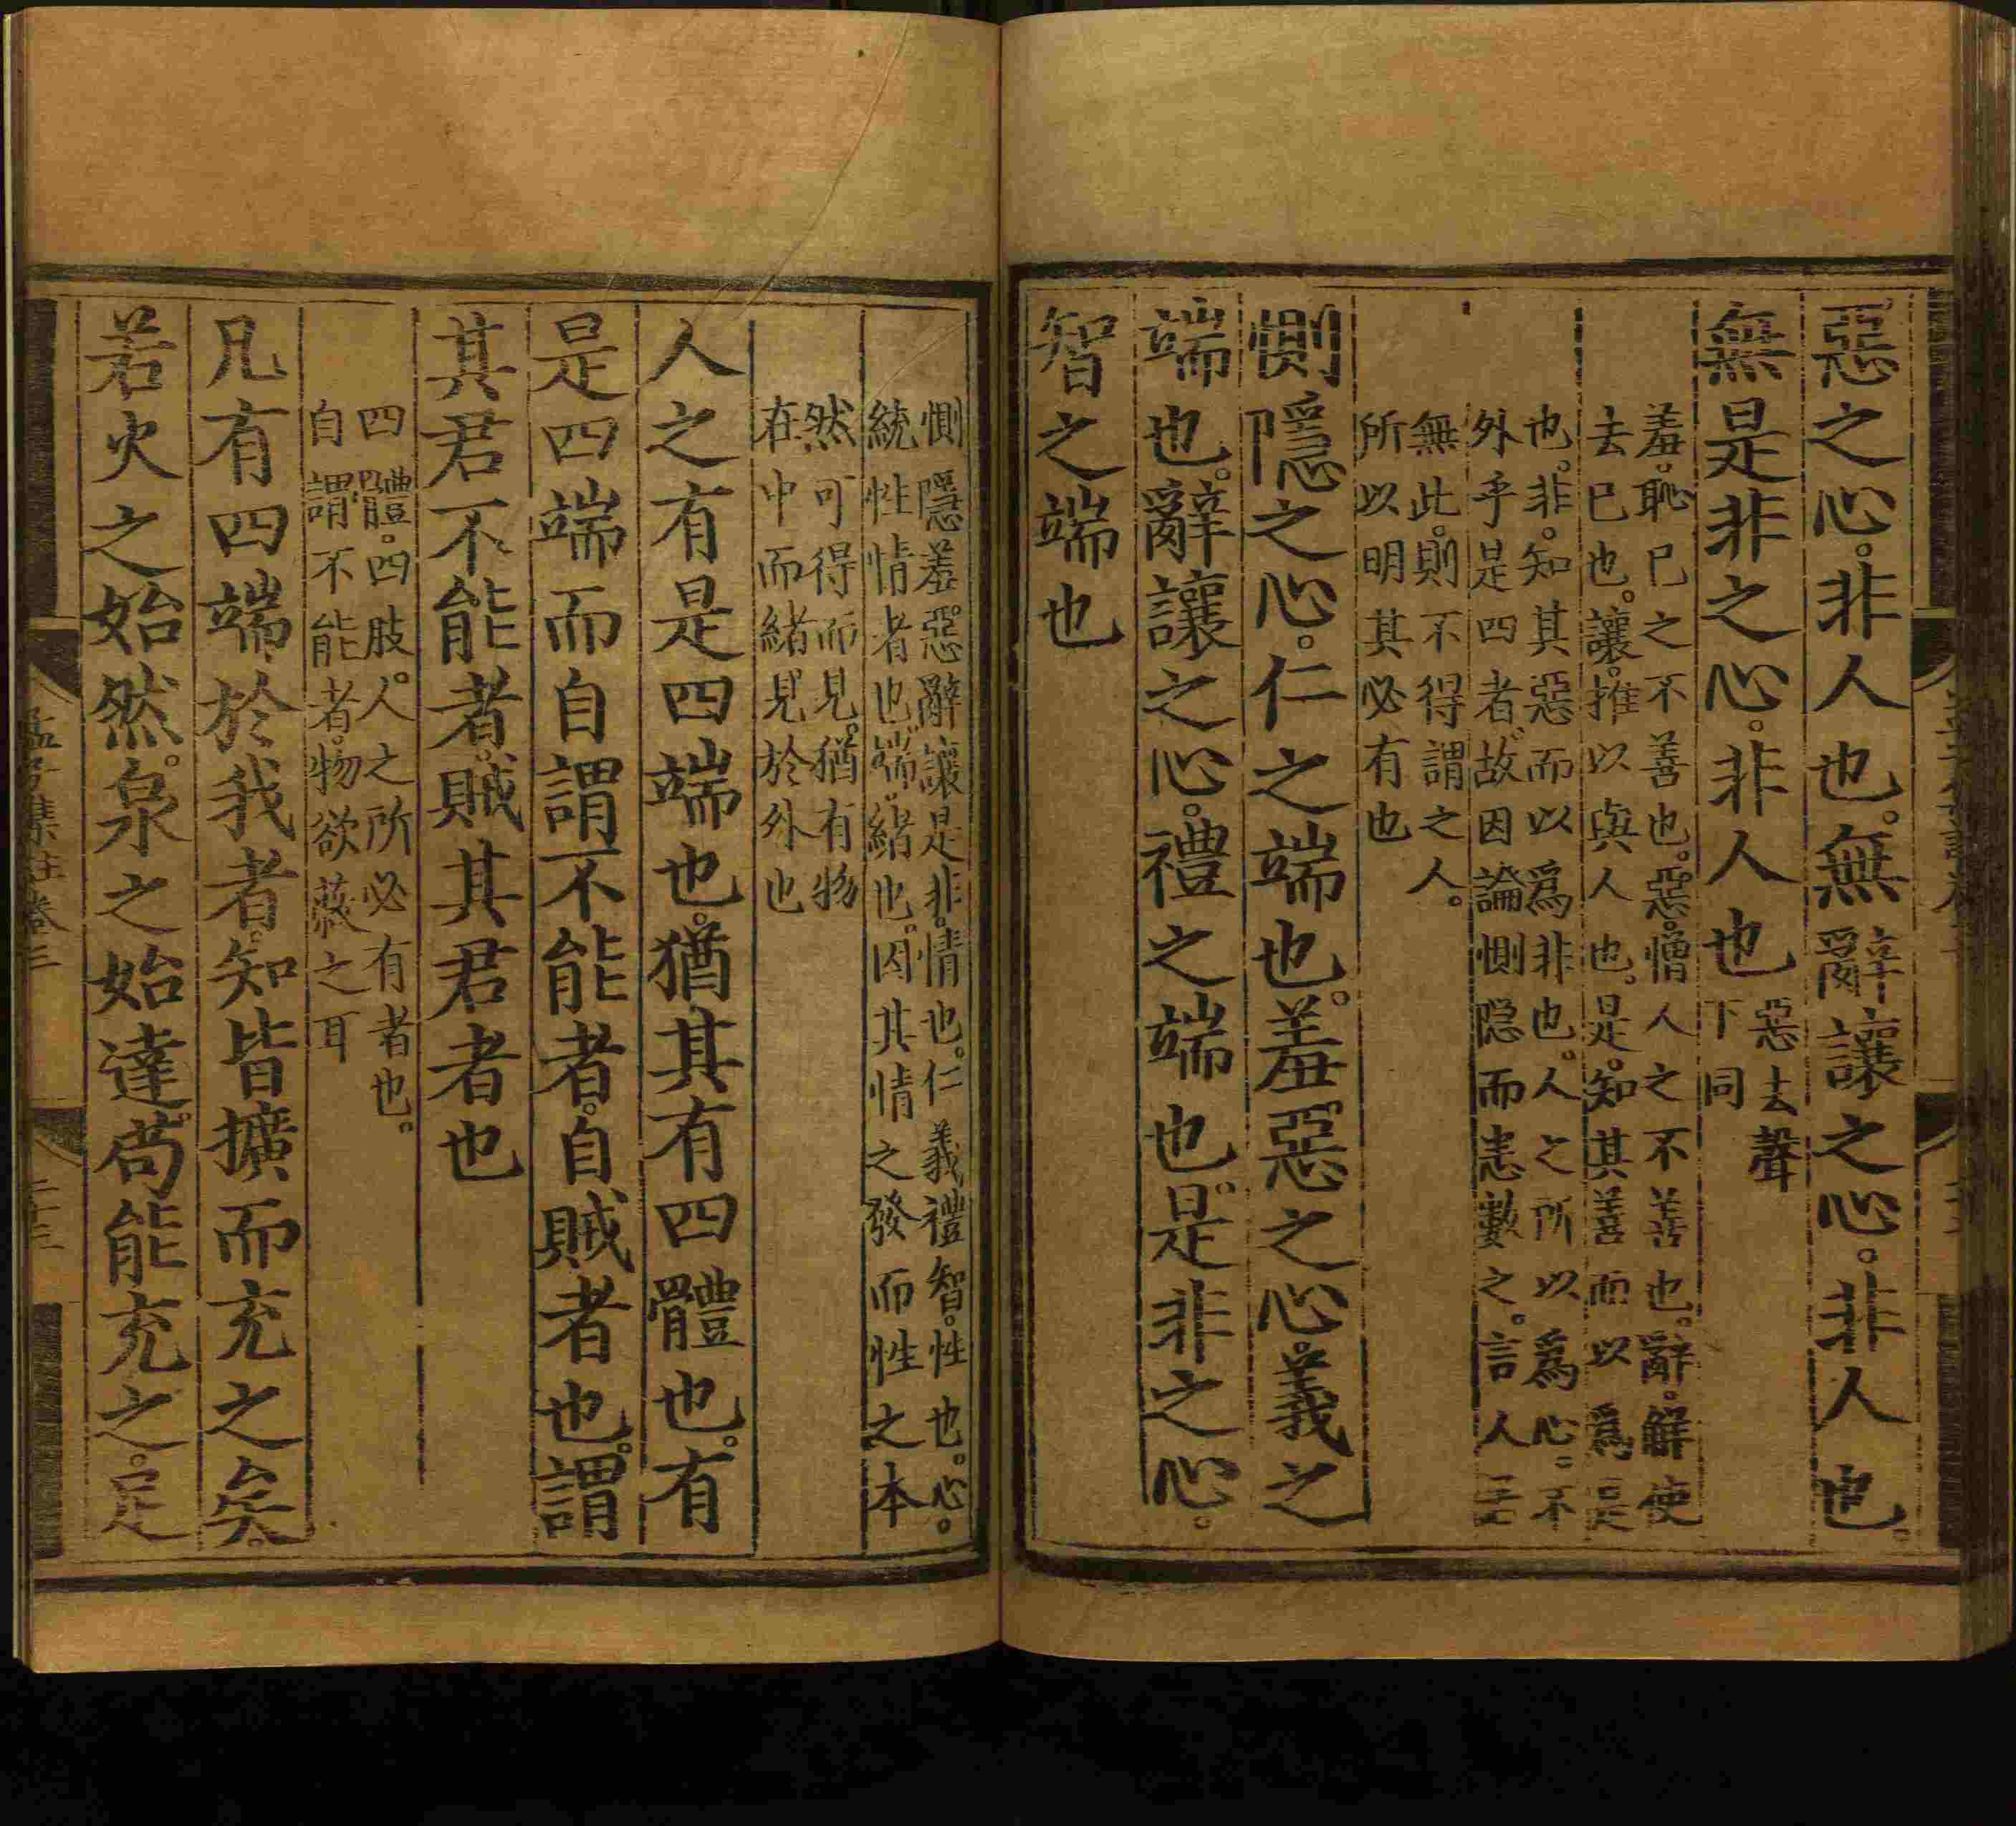 惡之心。非人也。無辭讓之心。非人也。
無是非之心。非人也
惡去聲
下同
羞。恥己之不善也。惡。憎人之不善也。辭。解使
去己也。讓。推以與人也。是。知其善而以爲是
也。非。知其惡而以爲非也。人之所以爲心。不
外乎是四者。故因論惻隱而悉數之。言人若
無此。則不得謂之人。
所以明其必有也
惻隱之心。仁之端也。羞惡之心。義之
端也。辭讓之心。禮之端也。是非之心。
智之端也
惻隱羞惡。辭讓是非。情也。仁義禮智。性也。心。
統性情者也。端。緒也。因其情之發。而性之本
然可得而見。猶有物
在中而緒見於外也
人之有是四端也。猶其有四體也。有
是四端而自謂不能者。自賊者也。謂
其君不能者。賊其君者也
四體。四肢。人之所必有者也。
自謂不能者。物欲蔽之耳
凡有四端於我者。知皆擴而充之矣。
若火之始然。泉之始達。苟能充之。足
孟子集註卷三
二十三